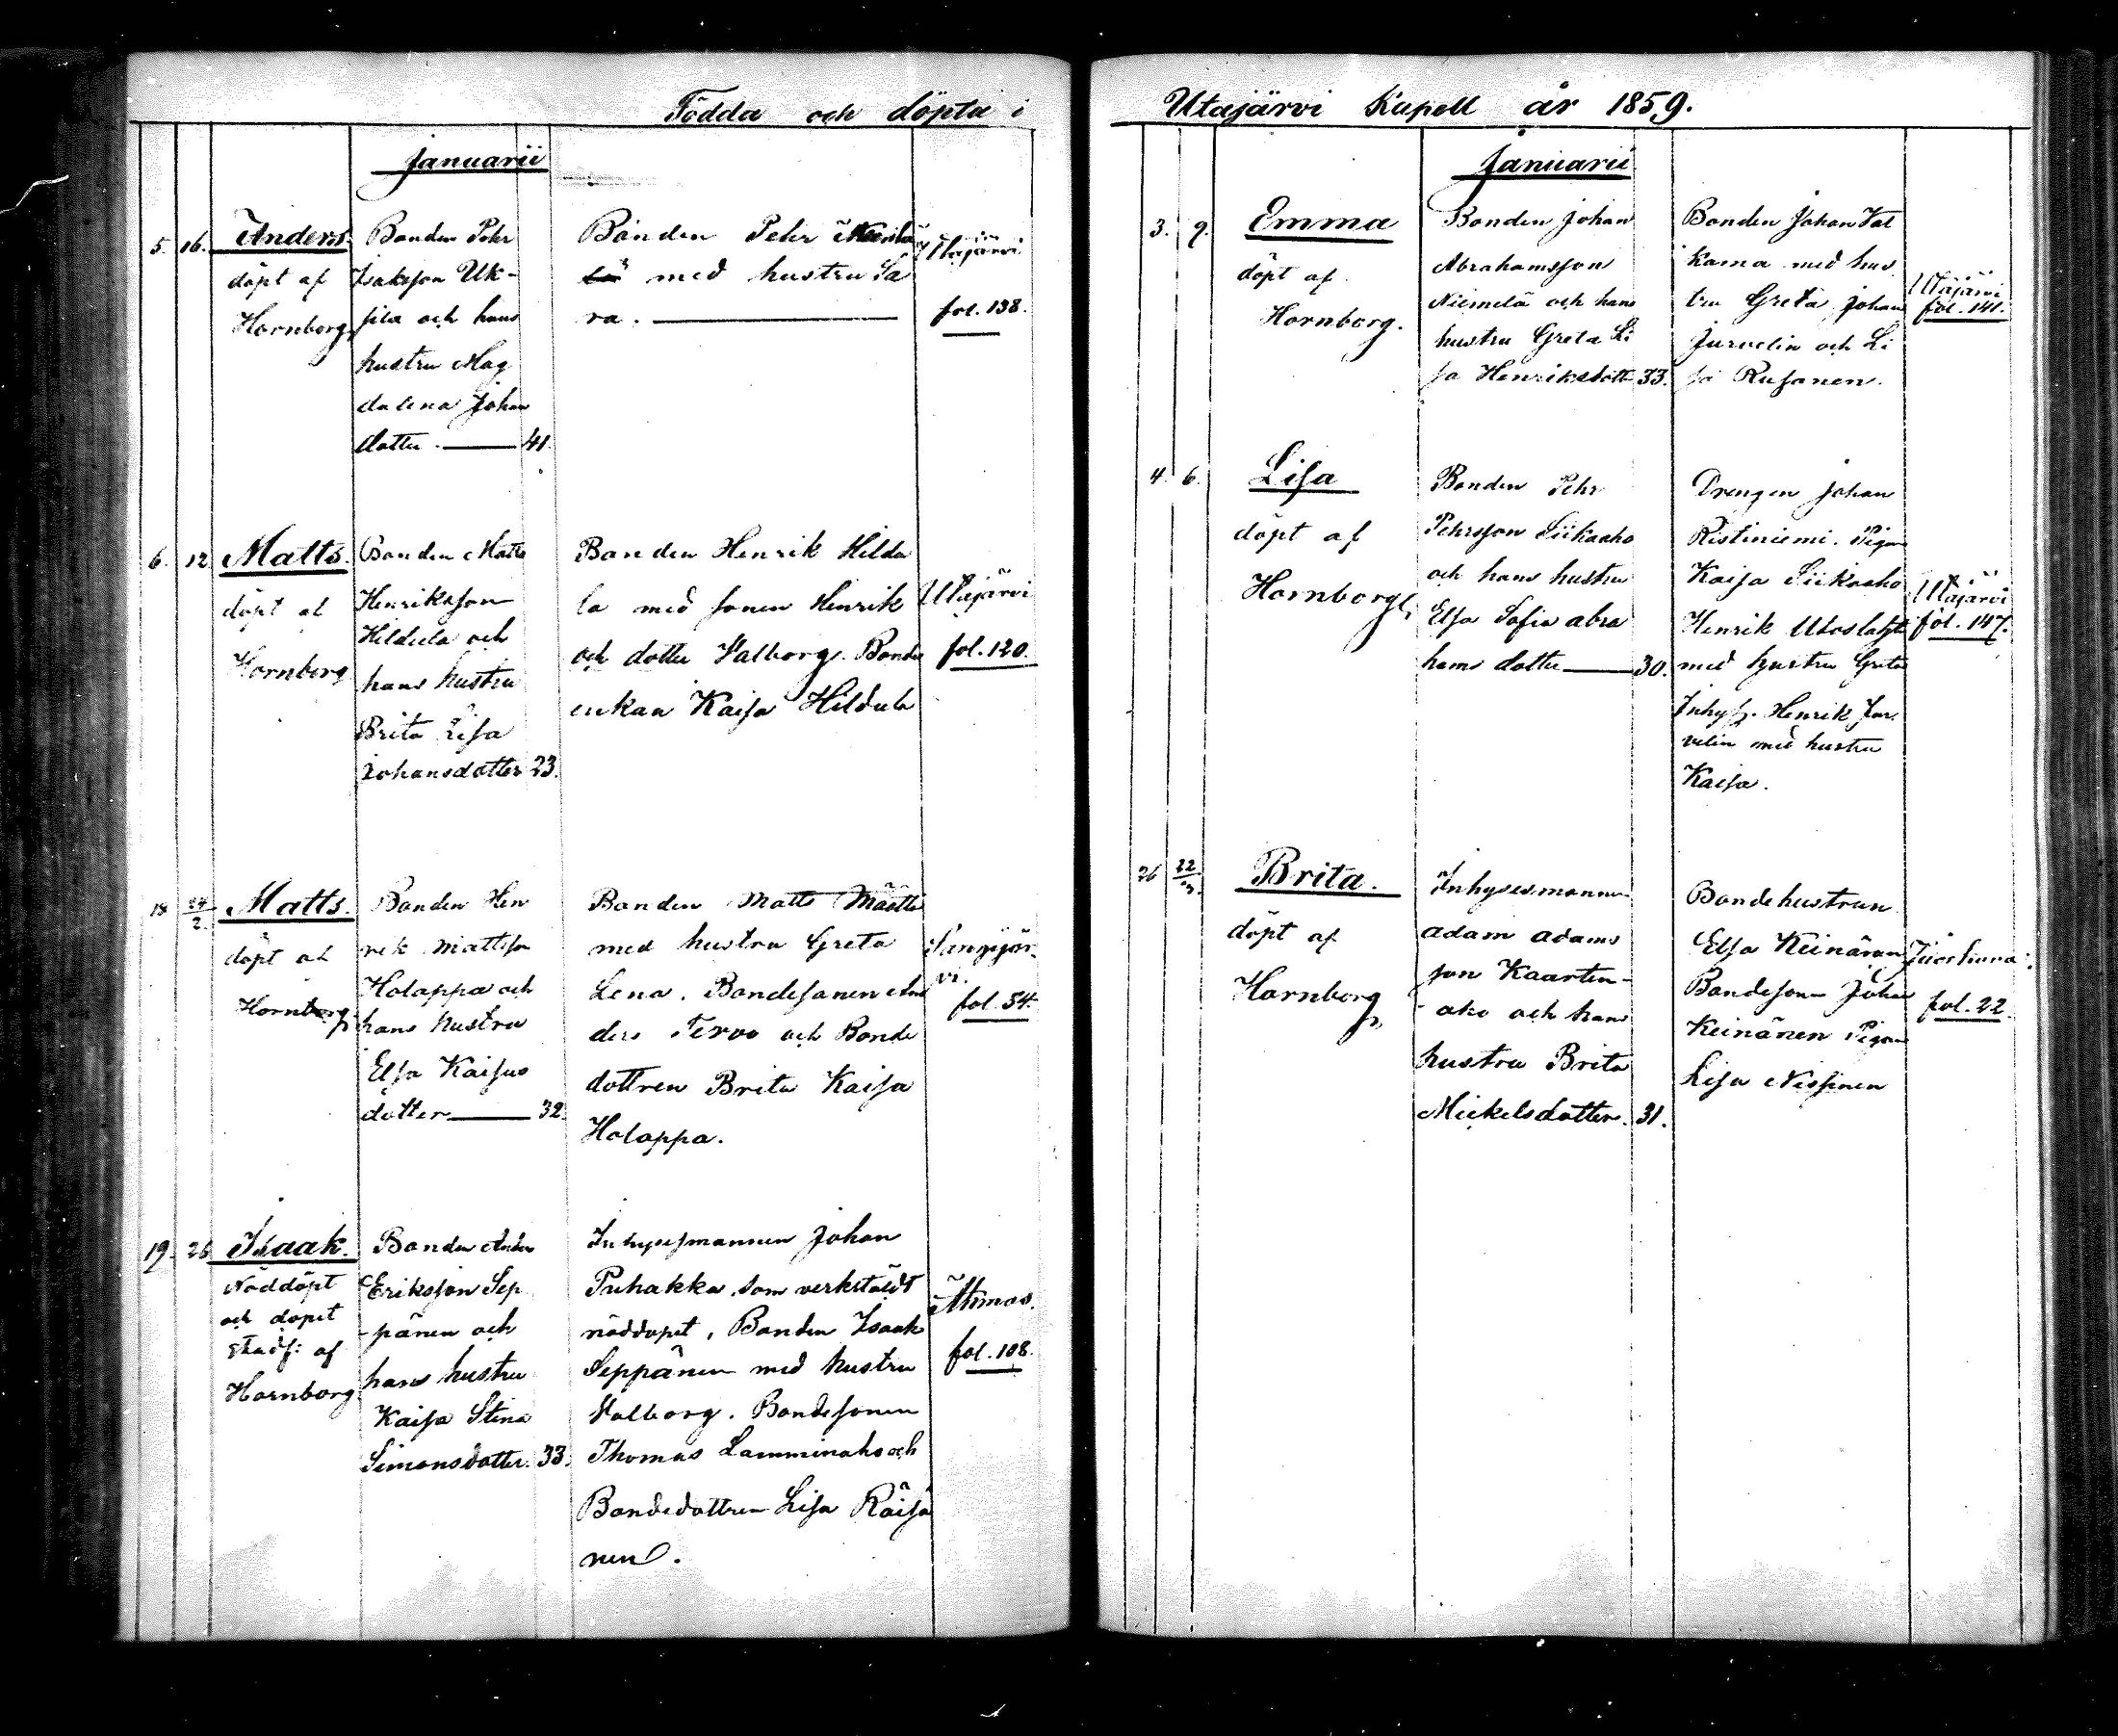 Födda och döpta i
Januarii
5. 16. Anders
döpt af
Hornborg
Bonden Pehr
Isaksson Uk-
sila och hans
hustru Mag
dalena Johans
dotter. 41.
Bonden Pehr
med hustru Sa
ra.
Utajärvi
fol. 138.
6. 12 Matts.
döpt af
Hornborg
Bonden Matts
Henriksson
Hildula och
hans hustru
Brita Lisa
Johansdotter 23.
Bonden Henrik Hildu
la med sonen Henrik
och dotter Valborg. Bonde
enkan Kaisa Hildula
Utajärvi
fol. 120.
18 24/2. Matts.
döpt af
Hornborg
Bonden Hen
rik Mattsson
Holappa och
hans hustru
Elsa Kaisas
dotter 32.
Bonden Matts Määttä
med hustru Greta
Lena. Bondesonen An
ders Tervo och Bonde
dottren Brita Kaisa
Holappa.
Sangijär-
vi.
fol. 54.
19. 26 Isaak.
Nöddöpt
och dopet
stadf: af
Hornborg
Bonden Anders
Eriksson Sep
-pänen och
hans hustru
Kaisa Stina
Simonsdotter. 33.
Inhysesmannen Johan
Puhakka, som verkstäldt
nöddopet, Bonden Isaak
Seppänen med hustru
Valborg. Bondesonen
Thomas Lamminaho och
Bondedottren Lisa Räisä
nen.
Ahmas.
fol. 108.
Utajärvi Kapell år 1859.
Januarii
3. 9. Emma
döpt af
Hornborg.
Bonden Johan
Abrahamsson
Niemelä och hans
hustru Greta Li
sa Henriksdott 33.
Bonden Johan Val
kama med hus
tru Greta, Johan
Jurvelin och Li
sa Rusanen.
Utajärvi
fol. 141.
4. 6. Lisa
döpt af
Hornborg
Bonden Pehr
Pehrsson Siikaaho
och hans hustru
Elsa Sofia Abra
hams dotter 30.
Drengen Johan
Ristiniemi. Pigan
Kaisa Siikaaho
Henrik Utoslahti
med hustru Greta
Inhys. Henrik Jur
velin med hustru
Kaisa.
Utajärvi
fol. 147.
26 22/3. Brita.
döpt af
Hornborg
Inhysesmannen
Adam Adams
son Kaarten-
-aho och hans
hustru Brita
Mickelsdotter. 31.
Bondehustrun
Elsa Keinänen
Bondeson Johan
Keinänen Pigan
Lisa Nissinen
fol. 22.